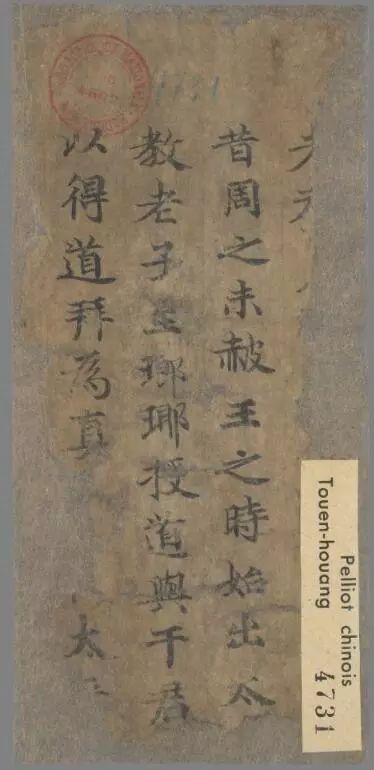 昔周之末赧王之時始出太
教老子至瑯瑘授道與干君
以得道拜為真
太
4731
Pelliot chinois
Touen-houang 4731